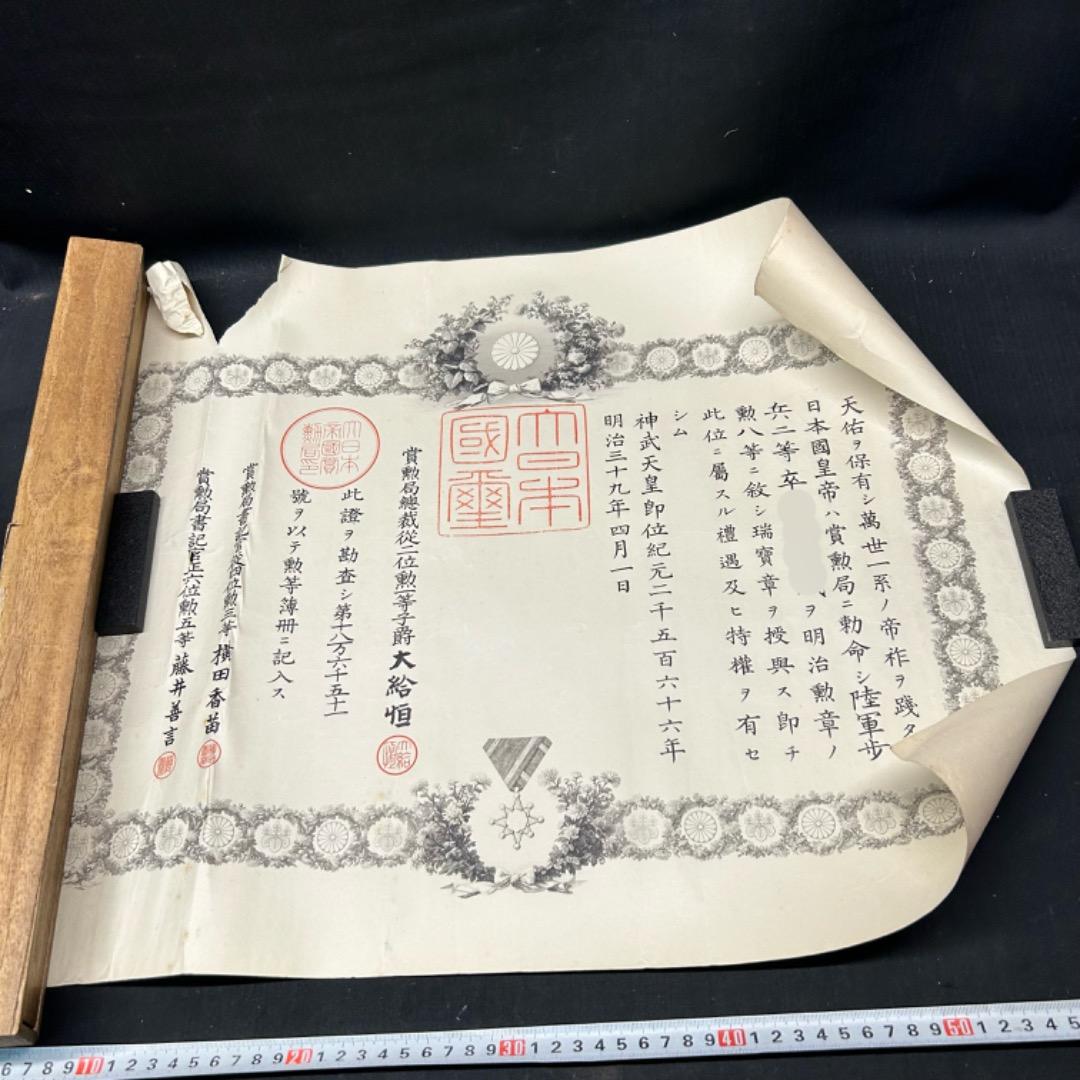 天佑ヲ保有シ萬世一系ノ帝祚ヲ踐タ
日本國皇帝ハ賞勲局ニ勅命シ陸軍歩
兵二等卒 ヲ明治勲章ノ
勲八等ニ敘シ瑞寶章ヲ授與ス即チ
此位ニ屬スル禮遇及ヒ特權ヲ有セ
シム
神武天皇即位紀元二千五百六十六年
明治三十九年四月一日
大日本國璽
賞勲局總裁從二位勲一等子爵大給恒
此證ヲ勘査シ第十八万六千五十一
號ヲ以テ勲等簿冊ニ記入ス
大日本帝國賞勲局印
賞勲局書記官從四位勲三等横田香苗
賞勲局書記官正六位勲五等藤井善言
6 7 8 9 10 1 2 3 4 5 6 7 8 9 20 1 2 3 4 5 6 7 8 9 30 1 2 3 4 5 6 7 8 9 40 1 2 3 4 5 6 7 8 9 50 1 2 3 4 5